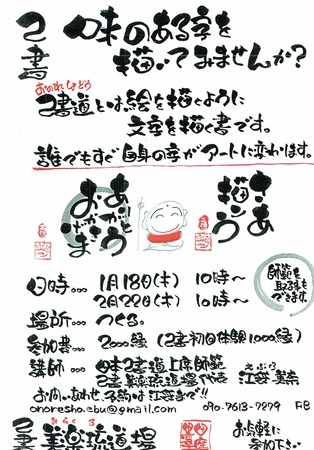 己書
味のある字を
描いてみませんか?
おのれしょどう
己書道とは絵を描くように
文字を描く書です。
誰でもすぐ自身の字がアートに変わります。
さあ
描こう
ありがとう
おかげさま
師範を
取る事も
できます。
日時… 1月18日(木) 10時〜
2月22日(木) 10時〜
場所… つくる。
参加書… 2000縁 (己書初回体験1000縁)
講師… 日本己書道上席師範
己書 美楽琉道場
お問いあわせ 予約は江藤まで!!
onoresho.ebu@gmail.com 090-7613-7279 FB
みらくる
己書 美楽琉道場
お気軽に
ご参加下さい